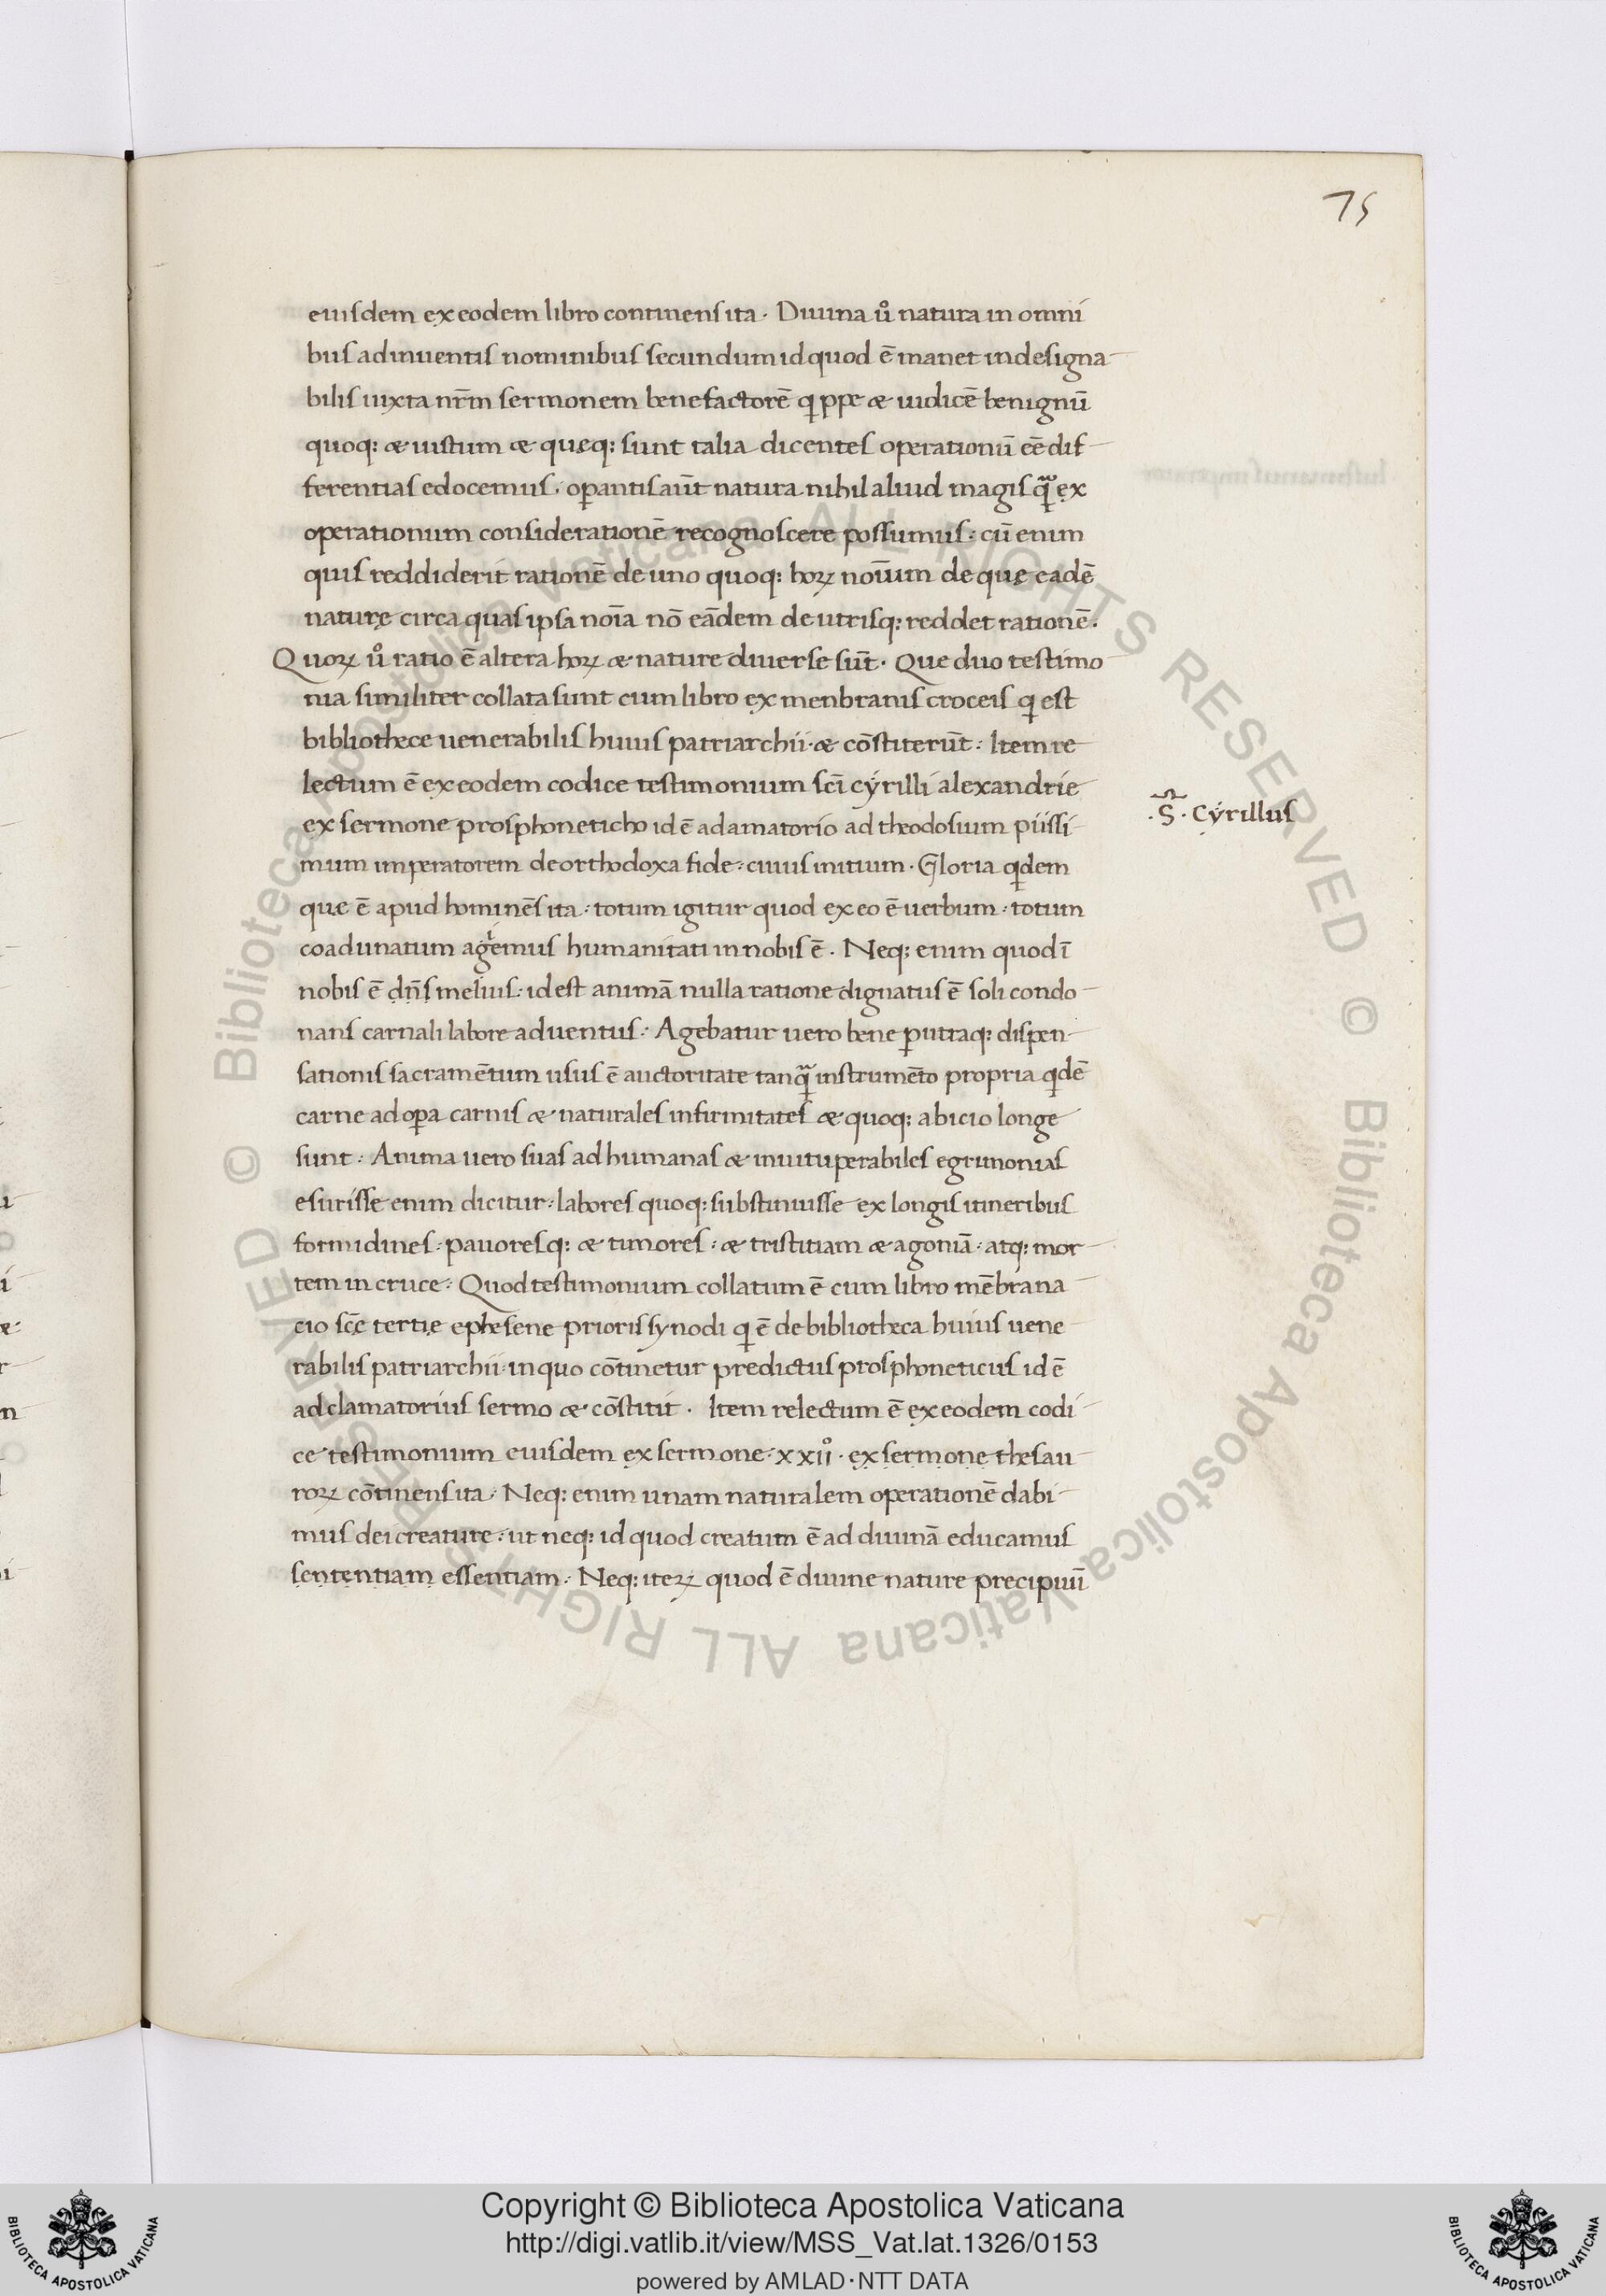 75
eiusdem ex eodem libro continens ita · Diuina u̓o natura in omni
bus adinuentis nominibus secundum id quod ē manet indesigna-
bilis iuxta nr̄m sermonem benefactorē qippe æ iudicē benignū
quoq: æ iustum æ queq: sunt talia dicentes operationū eē dif-
ferentias edocemus · operantis aūt natura nihil aliud magis qua ex
operationum considerationē recognoscere possumus : cū enim
quis reddiderit rationē de uno quoq: hoꝝ noīum de quę eadē
naturę circa quas ipsa noīa nō eādem de utrisq: reddet rationē.
Quoꝝ u̓o ratio ē altera hoꝝ æ nature diuerse sūt · Que duo testimo
nia similiter collata sunt cum libro ex menbranis croceis qi est
bibliothece uenerabilis huius patriarchii · æ cōstiterūt : Item re
lectum ē ex eodem codice testimonium sc̄i cẏrilli alexandrie
·S̄· Cẏrillus
ex sermone prosphoneticho id ē adamatorio ad theodosium piissi-
mum imperatorem de orthodoxa fide : cuius initium · Gloria qidem
que ē apud hominēs ita : totum igitur quod ex eo ē uerbum : totum
coadunatum agemus humanitati in nobis ē . Neq: enim quod ī
nobis ē dn̄s melius : id est animā nulla ratione dignatus ē soli condo-
nans carnali labore aduentus : Agebatur uero bene p utraq: dispen-
sationis sacramētum usus ē auctoritate tanqua instrumēto propria qidē
carne ad opa carnis æ naturales infirmitates æ quoq: abicio longe
sunt : Anima uero suas ad humanas æ inuituperabiles egrimonias
esurisse enim dicitur : labores quoq: substinuisse ex longis itineribus
formidines : pauoresq: æ timores : æ tristitiam æ agoniā : atq: mor-
tem in cruce : Quod testimonium collatum ē cum libro mēbrana-
cio sc̄ę tertię ephesene prioris synodi qi ē de bibliotheca huius uene
rabilis patriarchii · in quo cōtinetur predictus prosphoneticus id ē
adclamatorius sermo æ cōstitit · Item relectum ē ex eodem codi-
ce testimonium eiusdem ex sermone · xxii° · ex sermone thesau-
roꝝ cōtinens ita : Neq: enim unam naturalem operationē dabi-
mus dei creature : ut neq: id quod creatum ē ad diuinā educamus
sententiam essentiam : Neq: iteꝝ quod ē diuine nature precipuū
Copyright © Biblioteca Apostolica Vaticana
http://digi.vatlib.it/view/MSS_Vat.lat.1326/0153
powered by AMLAD·NTT DATA
BIBLIOTECA APOSTOLICA VATICANA
BIBLIOTECA APOSTOLICA VATICANA
© Biblioteca Apostolica Vaticana ALL RIGHTS RESERVED © Biblioteca Apostolica Vaticana ALL RIGHTS RESERVED